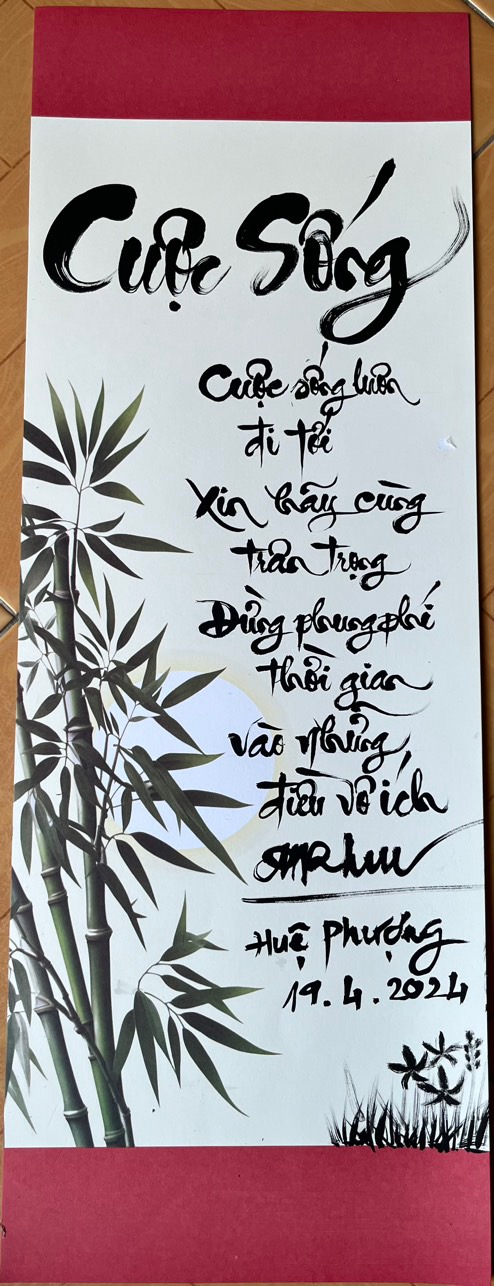 Cuộc Sống
Cuộc sống luôn
đi tới
Xin hãy cùng
trân trọng
Đừng phung phí
thời gian
vào những
điều vô ích
Huệ Phượng
19.4.2024